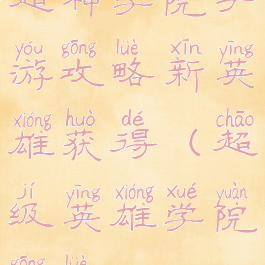 超神学院手
yóu gōng lüè xīn yīng
游攻略新英
xióng huò dé chāo
雄获得（超
jí yīng xióng xué yuàn
级英雄学院
gōng lüè